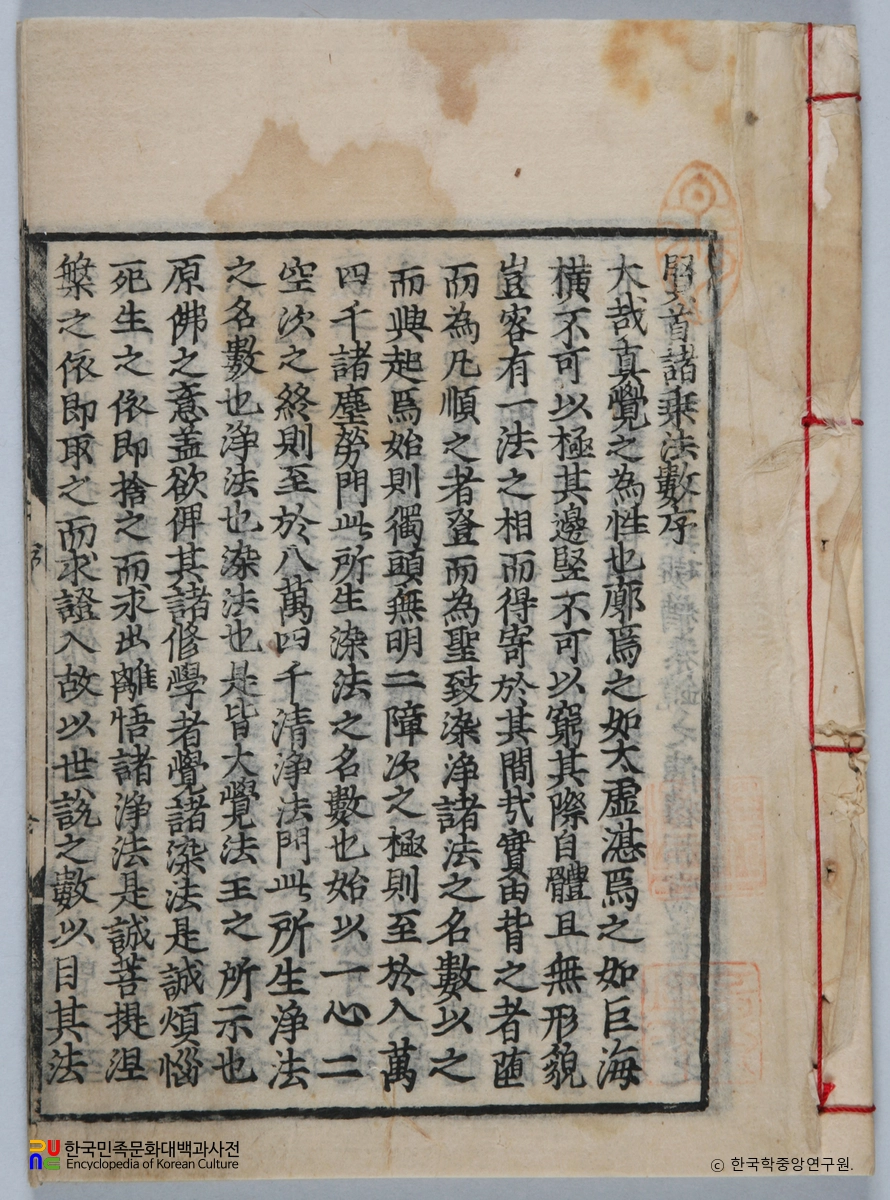 賢首諸乘法數序
大哉真覺之為性也廓焉之如太虛湛焉之如巨海
橫不可以極其邊竪不可以窮其際自體且無形貌
豈容有一法之相而得寄於其間㢤實由昔之者
而為凡順之者登而為聖致染淨諸法之名數以之
而興起焉始則獨頭無明二障次之極則至於八萬
四千諸塵勞門此所生染法之名數也始以一心二
空次之終則至於八萬四千清淨法門此所生淨法
之名數也淨法也染法也是皆大覺法王之所示也
原佛之意盖欲俾其諸修學者覺諸染法是誠煩惱
死生之依即捨之而求出離悟諸淨法是誠菩提涅
槃之依即取之而求證入故以世說之數以目其法
序
한국민족문화대백과사전
Encyclopedia of Korean Culture
ⓒ 한국학중앙연구원.